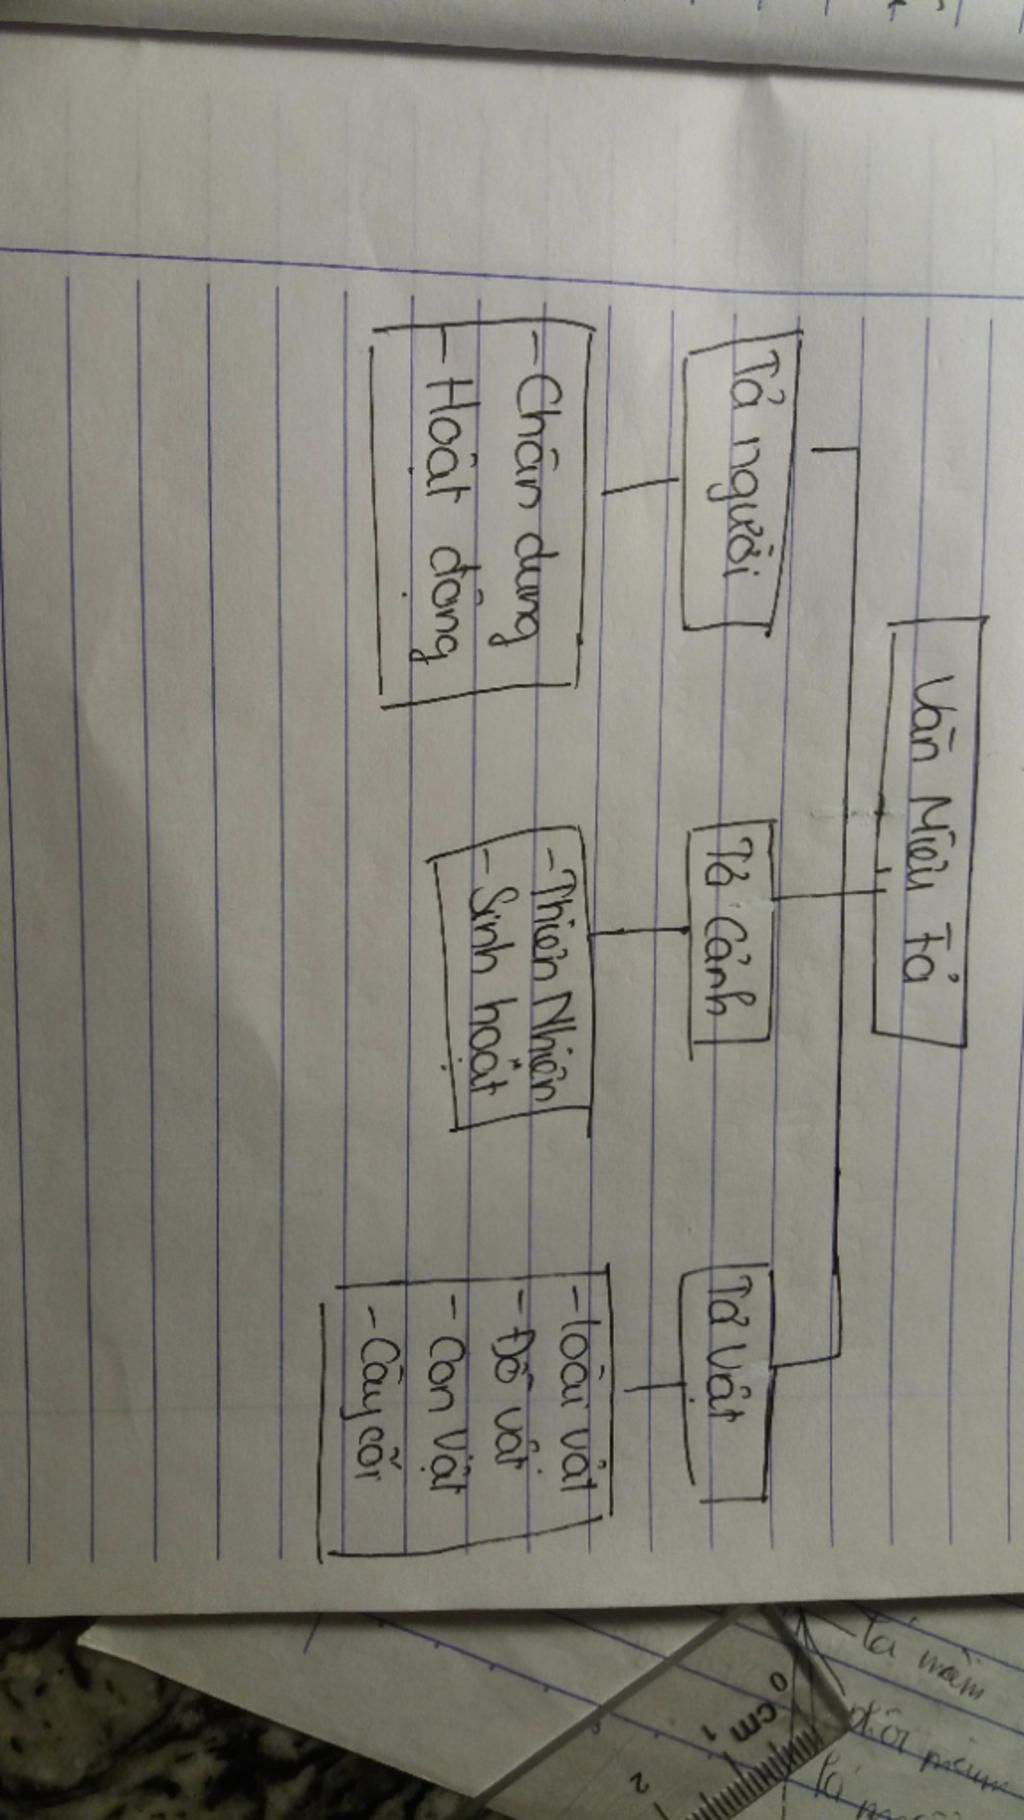 Văn Miêu tả
Tả người
Tả Cảnh
Tả Vật
- Chân dung
- Hoạt động
- Thiên Nhiên
- Sinh hoạt
- loài vật
- Đồ vật
- Con Vật
- Cây cối
lá mầm
phôi
lá
0 cm 1 2